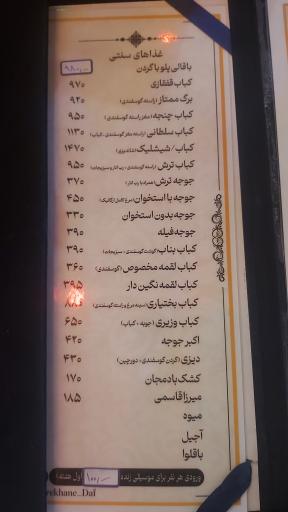 غذاهای سنتی
باقالی پلو با گردن ۹۸۰
کباب قفقازی ۹۷۰
برگ ممتاز (راسته گوسفندی) ۹۲۰
کباب چنجه (مغز راسته گوسفندی) ۹۵۰
کباب سلطانی (راسته مغز گوسفندی، کباب) ۱۱۳۰
کباب شیشلیک ۱۴۷۰
کباب ترش ۹۵۰
جوجه ترش ۳۷۰
جوجه با استخوان ۴۵۰
جوجه بدون استخوان ۳۳۰
جوجه فیله ۳۹۰
کباب بناب (گوشت گوسفندی - سبزیجات) ۳۹۰
کباب لقمه مخصوص (گوسفندی) ۳۶۰
کباب لقمه نگین دار ۳۹۵
کباب بختیاری (سینه مرغ و راسته گوسفندی)
کباب وزیری (جوجه، کباب) ۶۵۰
اکبر جوجه ۴۲۰
دیزی (گردن گوسفندی - دورچین) ۴۳۰
کشک بادمجان ۱۷۰
میرزا قاسمی ۱۸۵
میوه
آجیل
باقلوا
ورودی هر نفر برای موسیقی زنده ۱۰۰/۰۰۰ (اول هفته)
ekhane_Daï